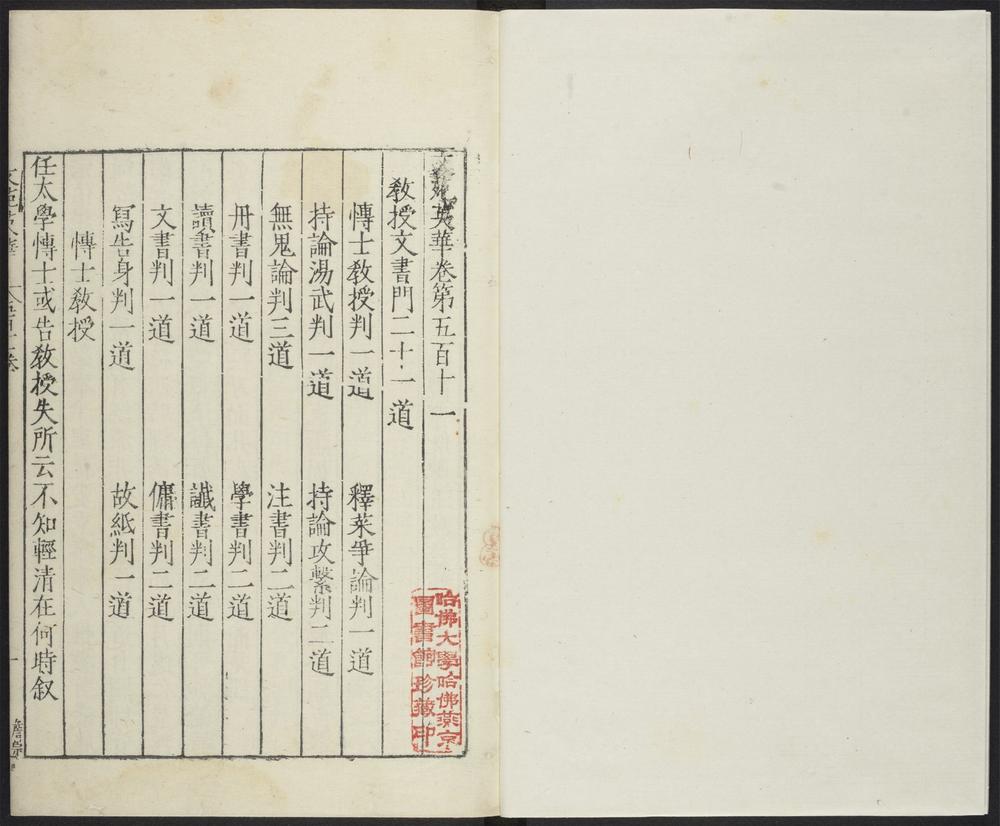 文苑英華卷第五百十一
教授文書門二十一道
慱士教授判一道 釋菜爭論判一道
持論湯武判一道 持論攻繫判二道
無鬼論判三道 注書判二道
冊書判一道 學書判二道
讀書判一道 讖書判二道
文書判一道 傭書判二道
寫告身判一道 故紙判一道
慱士教授
任太學慱士或告教授失所云不知輕清在何時叙
哈佛大學哈佛燕京
圖書館珍藏印